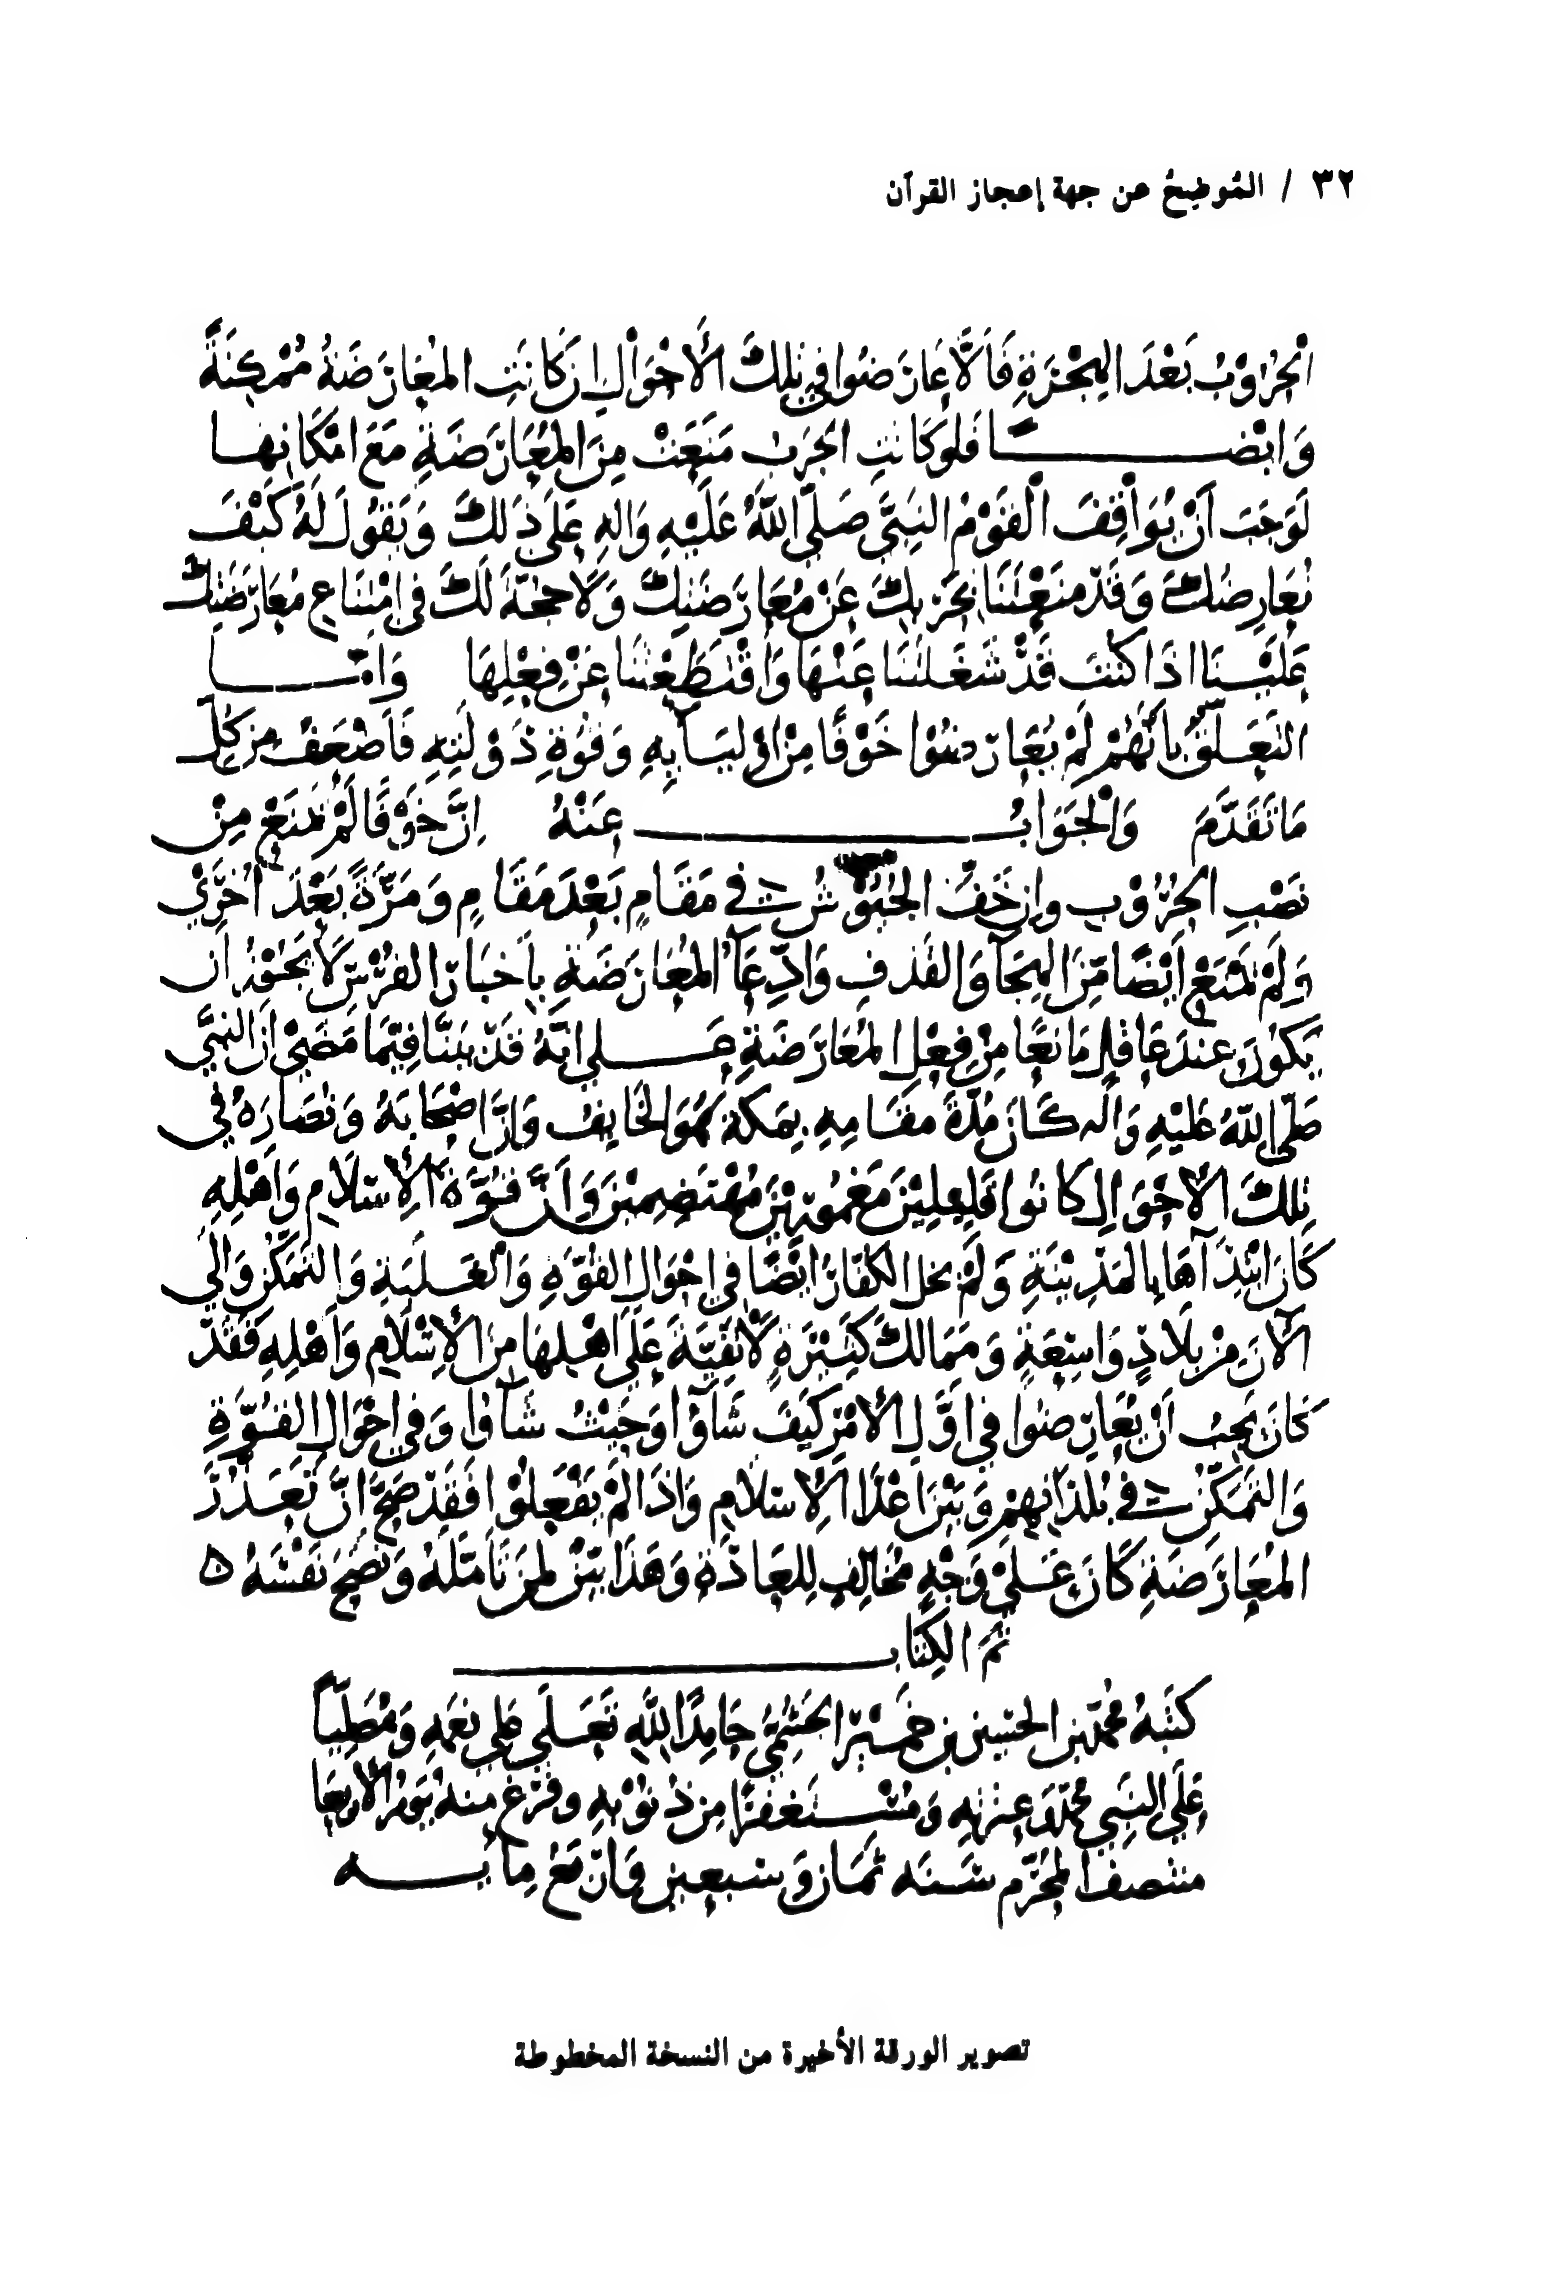 ٣٢ / المُوضِحُ عن جهة إعجاز القرآن
الْحُرُوْبُ بَعْدَ الهِجْرَةِ فَاَلَّا عَارَضُوا فِي تِلْكَ الْاَحْوَالِ اِنْ كَانَتِ المُعَارَضَةُ مُمْكِنَةً
وَايْضًا فَلَوْ كَانَتِ الحَرْبُ مَنَعَتْ مِنَ المُعَارَضَةِ مَعَ امْكَانِهَا
لَوَجَبَ اَنْ يُوَاقِفَ الْقَوْمُ النَبِيَّ صَلَّى اللّٰهُ عَلَيْهِ وَالِهِ عَلَى ذَلِكَ وَيَقُولَ لَهُ كَيْفَ
نُعَارِضُكَ وَقَدْ مَنَعْتَنَا بِحَرْبِكَ عَنْ مُعَارَضَتِكَ وَلَا حُجَّةَ لَكَ فِي امْتِنَاعِ مُعَارَضَتِكَ
عَلَيْنَا اذَا كُنْتَ قَدْ شَغَلْتَنَا عَنْهَا وَاقْتَطَعْتَنَا عَنْ فِعْلِهَا وَامَّا
التَعَلُّقُ بِاَنَّهُمْ لَمْ يُعَارِضُوا خَوْفًا مِنْ اوْلِيَآيِهِ وَقُوَّةِ دَوْلَتِهِ فَاَضْعَفُ مِن كُلِّ
مَا تَقَدَّمَ وَالْجَوَابُ عَنْهُ اِنَّ خَوْفًا لَمْ يَمْنَعْ مِنْ
نَصْبِ الحُرُوْبِ وان خَفَّ الجُيُوْشُ فِي مَقَامٍ بَعْدَ مَقَامٍ وَمَرَّةً بَعْدَ اُخْرَى
وَلَمْ يَمْنَعْ اَيْضًا مِنَ الهِجَآ وَالقَذفِ وَادِّعَآ المُعَارَضَةِ بِاَخْبَارِ الفُرْسِ لَا يَجُوْزُ اَن
يَكُوْنَ عِندَ عَاقِلٍ مَانِعًا مِنْ فِعْلِ المُعَارَضَةِ عَلى انَّهُ قَدْ بَيَّنَّا فِيْمَا مَضَى اَنَّ النَبِيَّ
صَلَّى اللّٰهُ عَلَيْهِ وَاله كَانَ مُدَّةَ مَقَامِهِ بِمَكَّة هُوَ الخَايِفُ وَاَنَّ اَصْحَابَهُ وَنُصَارَهُ فِي
تِلْكَ الْاَحْوَالِ كَانُوا قَلِيْلِيْنَ مَغْمُوْرِيْنَ مُهْتَضَمِيْنَ وَاَنَّ قُوَّةَ الْاِسْلَامِ وَاَهْلِهِ
كَانَ ابْتِدَآهَا بِالمَدِيْنَةِ وَلَمْ يَخْلُ الكُفَّارُ اَيْضًا فِي اَحْوَالِ القُوَّةِ وَالْغَلَبَةِ وَالتَمَكُّنِ وَاِلَى
الْآنَ مِنْ بِلَادٍ وَاسِعَةٍ وَمَمَالِكَ كَثِيْرَةٍ لَا تَقِيَّةَ عَلَى اَهْلِهَا مِنَ الْاِسْلَامِ وَاَهْلِهِ فَقَدْ
كَانَ يَجِبُ اَنْ يُعَارِضُوا فِي اوَّلِ الْاَمْرِ كَيْفَ شَآؤُا وَحَيْثُ شَآؤا وَفِي اَحْوَالِ القُوَّةِ
وَالتَمَكُّنِ فِي بُلْدَانِهِمْ وَبَيْنَ اَعْدَآ الْاِسْلَامِ وَاذَا لَمْ يَفْعَلُوْا فَقَدْ صَحَّ انَّ تَعَذُّرَ
المُعَارَضَةِ كَانَ عَلَى وَجْهٍ مُخَالِفٍ لِلعَادَةِ وَهَذَا بَيِّنٌ لِمَنْ تَاَمَّلَهُ وَنَصَحَ نَفْسَهُ ه
تَمَّ الكِتَابُ
كَتَبَهُ مُحَمَّد بن الحُسَيْن بن حَامِدًا لِلّٰهِ تَعَالَى عَلى نِعَمِهِ وَمُصَلِّيًا
عَلَى النَبِي مُحَمَّد وَعِتْرَتِهِ وَمُسْتَغْفِرًا مِن ذُنُوْبِهِ وَفَرَغَ مِنهُ يَوْمَ الْاَرْبِعَا
منتصف المُحَرَّم سَنَه ثَمَانٍ وَسَبعِين وَاَرْبَعُ مِايَه
تصوير الورقة الأخيرة من النسخة المخطوطة